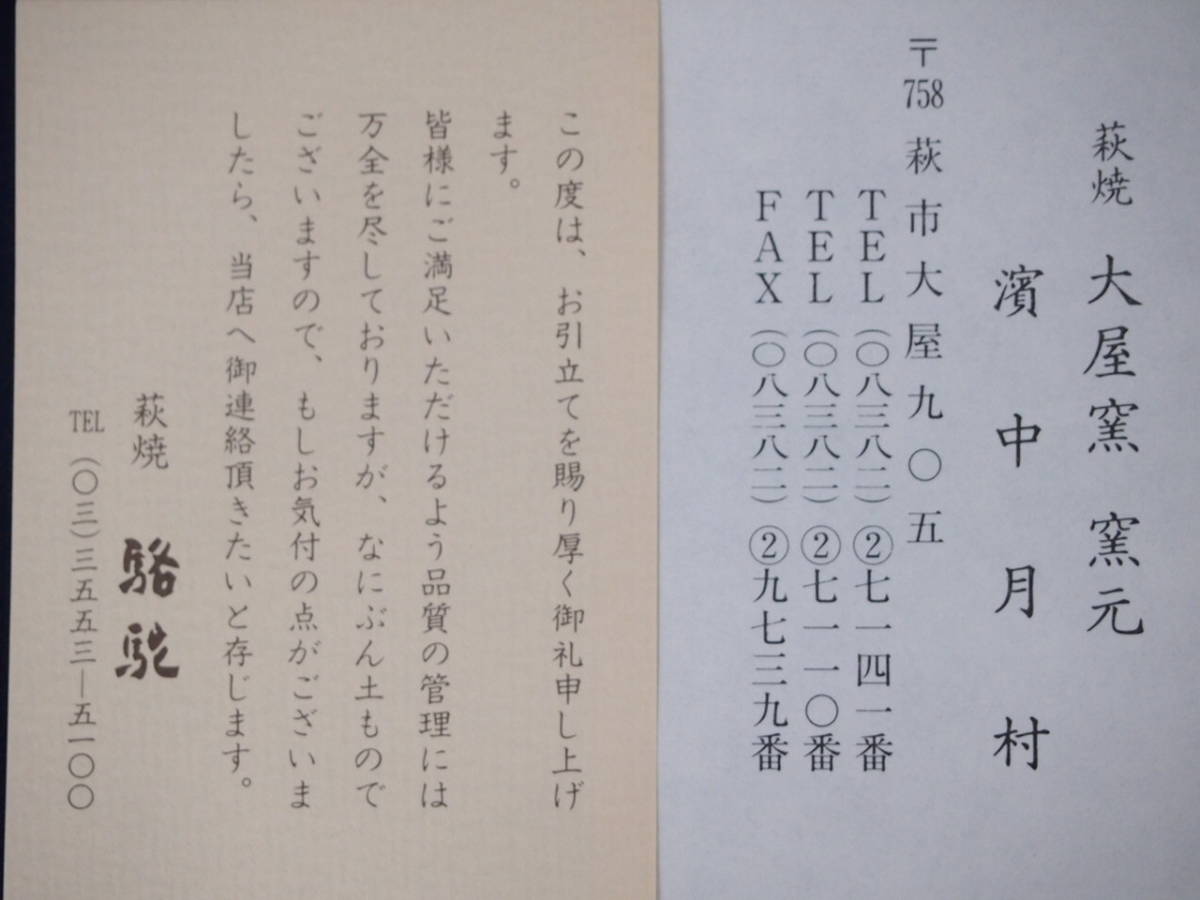 萩焼 大屋窯 窯元
濱中月村
〒758 萩市大屋九〇五
TEL（〇八三八二）②七一四一番
TEL（〇八三八二）②七一一〇番
FAX（〇八三八二）②九七三九番
この度は、お引立てを賜り厚く御礼申し上げ
ます。
皆様にご満足いただけるよう品質の管理には
万全を尽しておりますが、なにぶん土もので
ございますので、もしお気付の点がございま
したら、当店へ御連絡頂きたいと存じます。
萩焼 駱駝
TEL（〇三）三五五三―五一〇〇